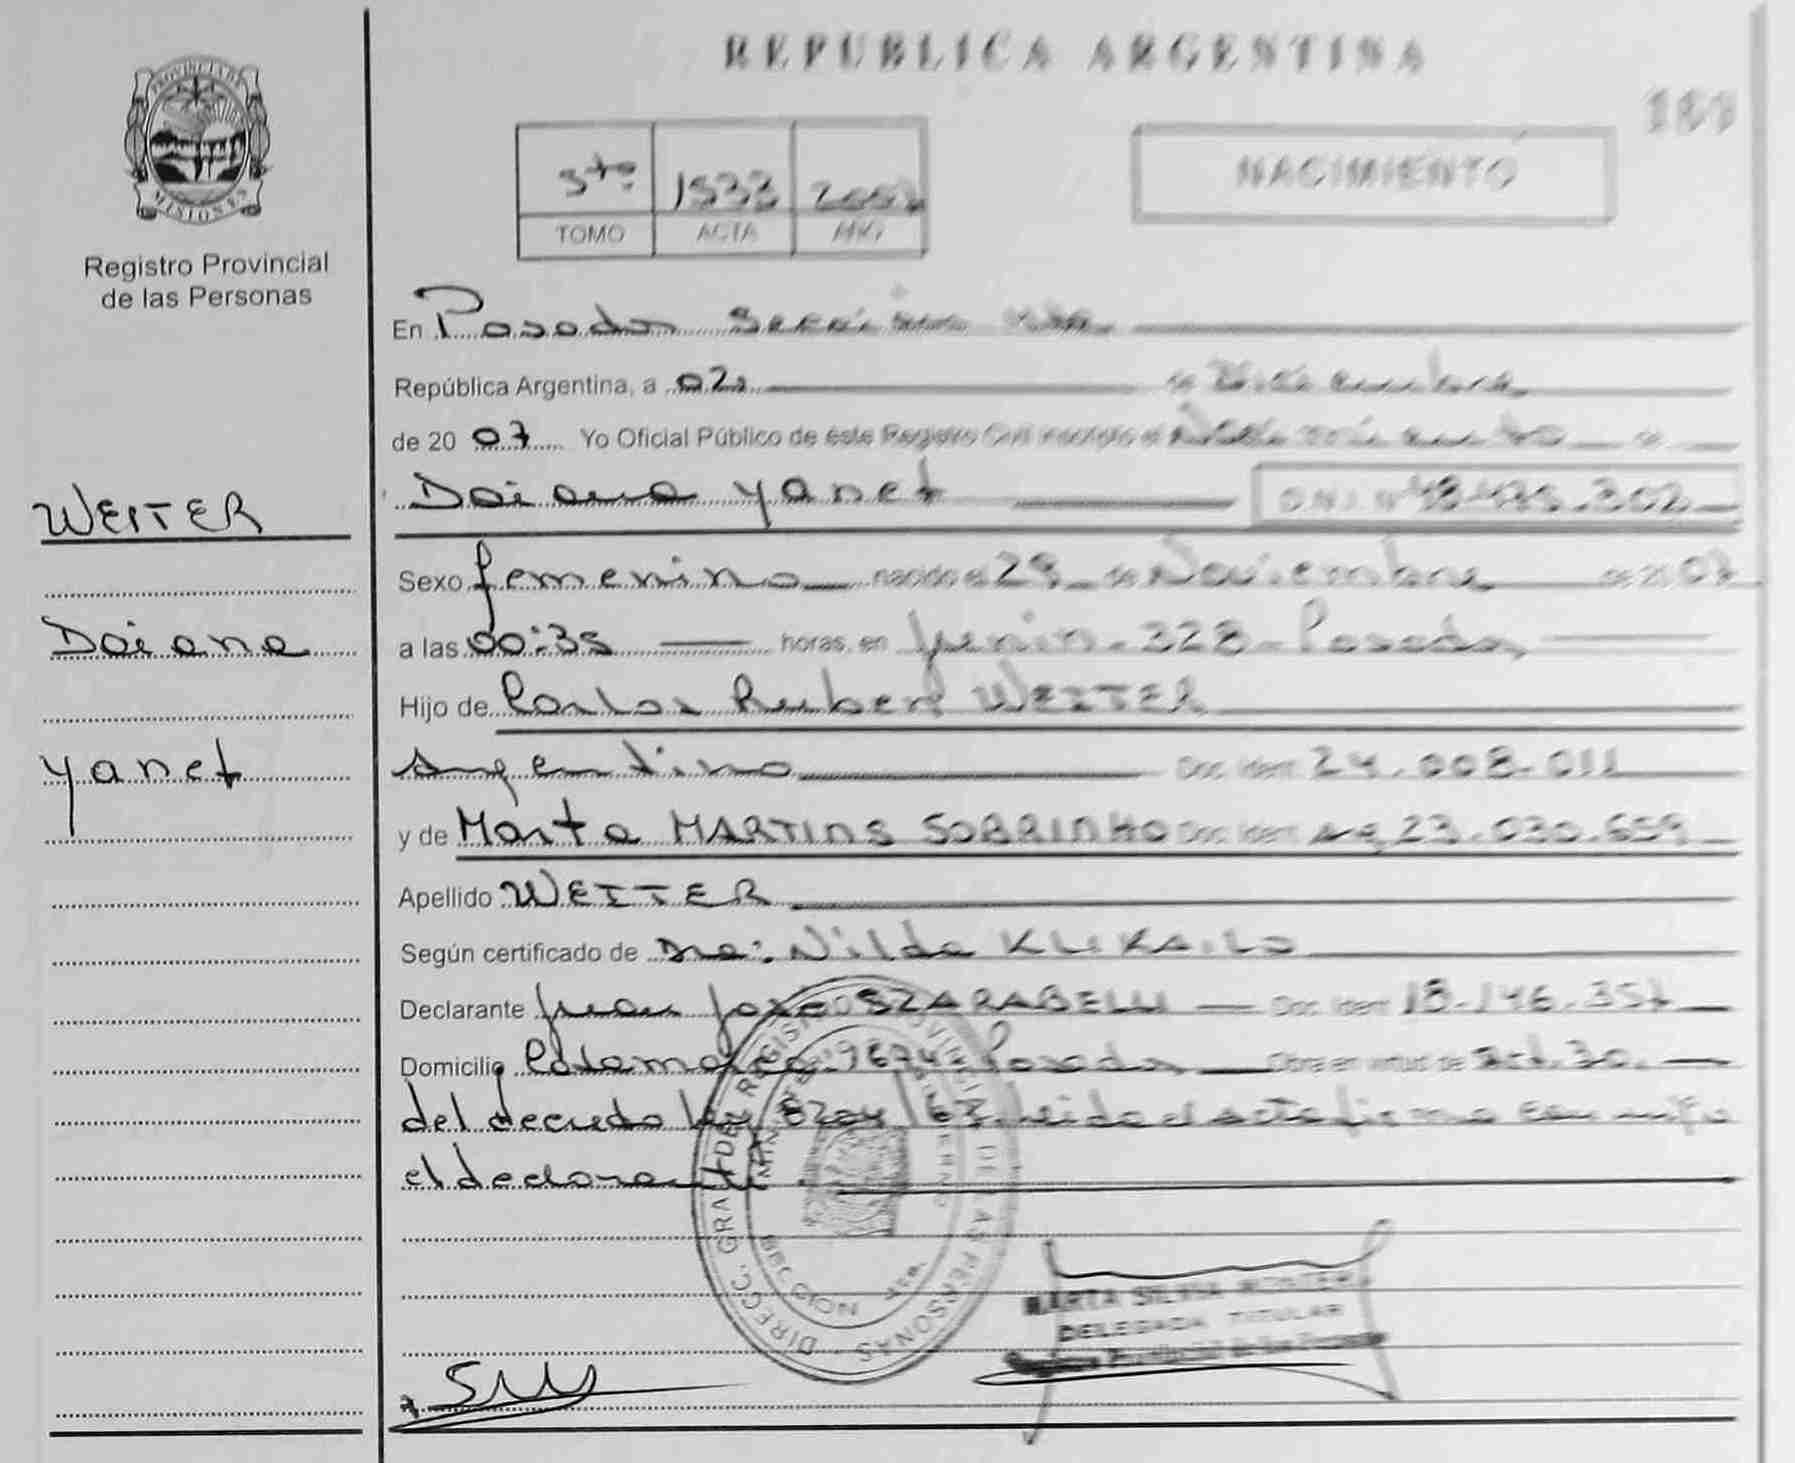 REPUBLICA ARGENTINA
PROVINCIA DE
MISIONES
Registro Provincial
de las Personas
5to 1533 2007
TOMO ACTA AÑO
NACIMIENTO
En Posadas Sección 5ta
República Argentina, a 02 de
de 20 07 Yo Oficial Público de este Registro Civil inscripto el Nacimiento de
WEITER
Daiana Yanet
Daiana Yanet D.N.I. Nº 48.475.302
Sexo femenino nacido el 29 de Noviembre de 20 07
a las 00:35 horas, en Junin - 328 - Posadas
Hijo de Carlos Ruben WEITER
Argentino Doc. Ident. 24.008.011
y de Marta MARTINS SOBRINHO Doc. Ident. Arg. 23.030.659
Apellido WEITER
Según certificado de Dra: Nilda KLIKAILO
Declarante Juan Jose SZARABELU Doc. Ident. 18.146.351
Domicilio Posadas Obra en virtud de Art. 30.
del decreto ley 8204/63. Leida el acta firma con migo
el declarante
DIRECC. GRAL. DEL REGISTRO PROVINCIAL DE LAS PERSONAS
SECCION 5ta.
MARTA SILVIA
DELEGADA TITULAR
Registro Provincial de las Personas